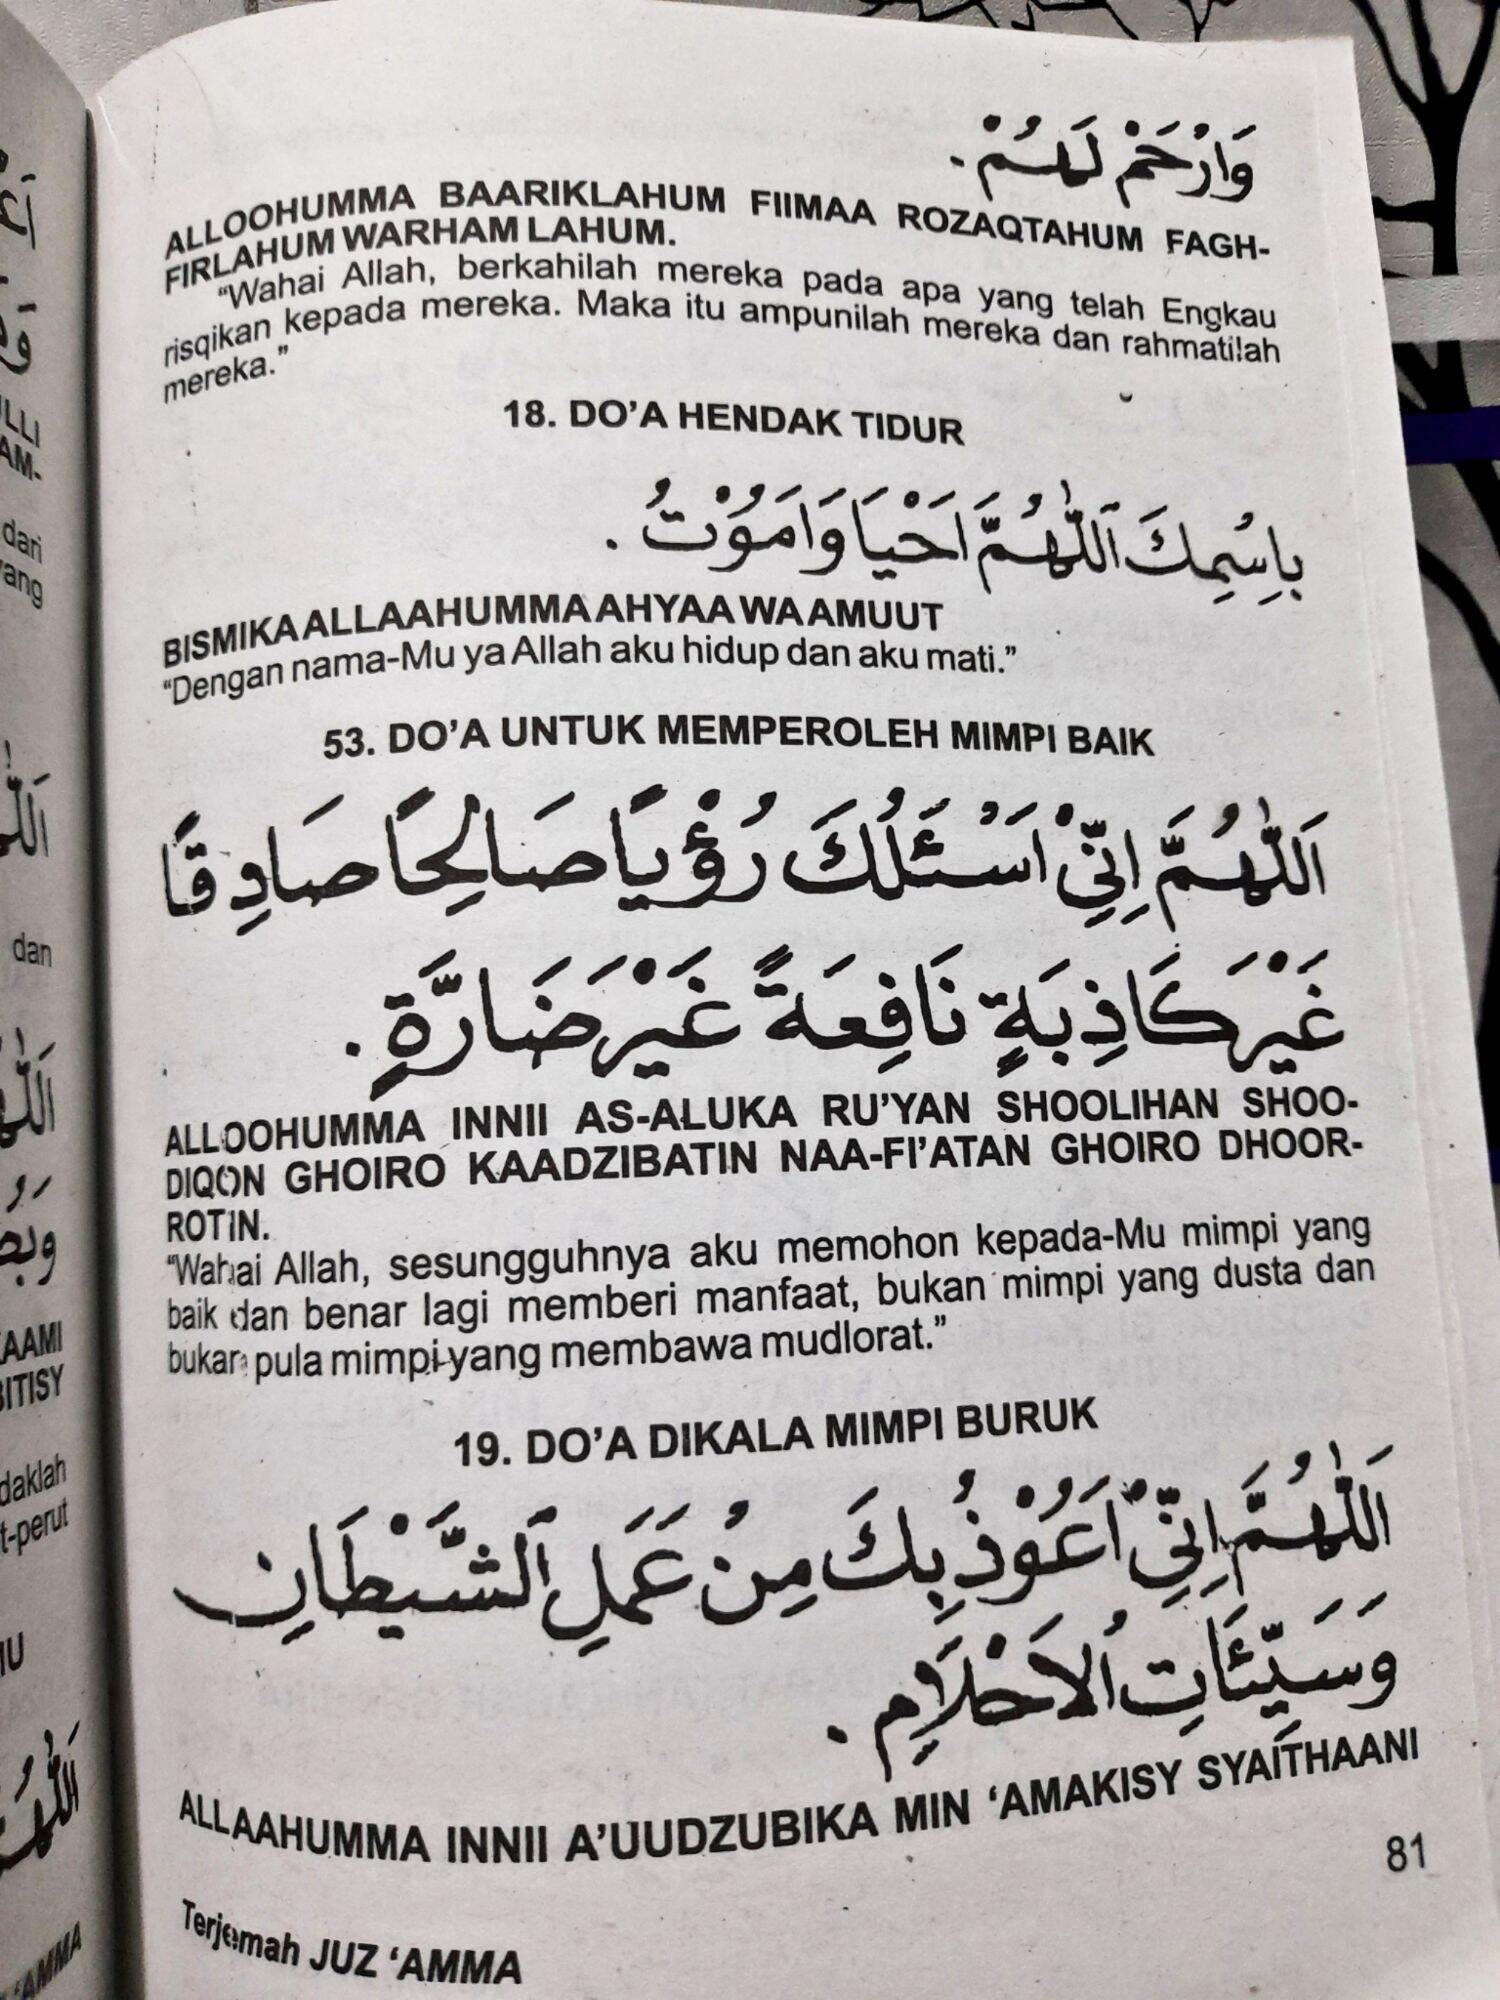 وَارْحَمْ لَهُمْ.
ALLOOHUMMA BAARIKLAHUM FIIMAA ROZAQTAHUM FAGH-
FIRLAHUM WARHAM LAHUM.
“Wahai Allah, berkahilah mereka pada apa yang telah Engkau
risqikan kepada mereka. Maka itu ampunilah mereka dan rahmatilah
mereka.”
18. DO’A HENDAK TIDUR
بِاسْمِكَ اَللّٰهُمَّ اَحْيَا وَاَمُوْتُ .
BISMIKA ALLAAHUMMA AHYAA WA AMUUT
“Dengan nama-Mu ya Allah aku hidup dan aku mati.”
53. DO’A UNTUK MEMPEROLEH MIMPI BAIK
اَللّٰهُمَّ اِنِّيْ اَسْئَلُكَ رُؤْيًا صَالِحًا صَادِقًا
غَيْرَ كَاذِبَةٍ نَافِعَةً غَيْرَ ضَارَّةٍ .
ALLOOHUMMA INNII AS-ALUKA RU’YAN SHOOLIHAN SHOO-
DIQON GHOIRO KAADZIBATIN NAA-FI’ATAN GHOIRO DHOOR-
ROTIN.
“Wahai Allah, sesungguhnya aku memohon kepada-Mu mimpi yang
baik dan benar lagi memberi manfaat, bukan mimpi yang dusta dan
bukan pula mimpi yang membawa mudlorat.”
19. DO’A DIKALA MIMPI BURUK
اَللّٰهُمَّ اِنِّيْ اَعُوْذُ بِكَ مِنْ عَمَلِ الشَّيْطَانِ
وَسَيِّئَاتِ الْاَحْلَامِ .
ALLAAHUMMA INNII A’UUDZUBIKA MIN ‘AMAKISY SYAITHAANI
81
Terjemah JUZ ‘AMMA